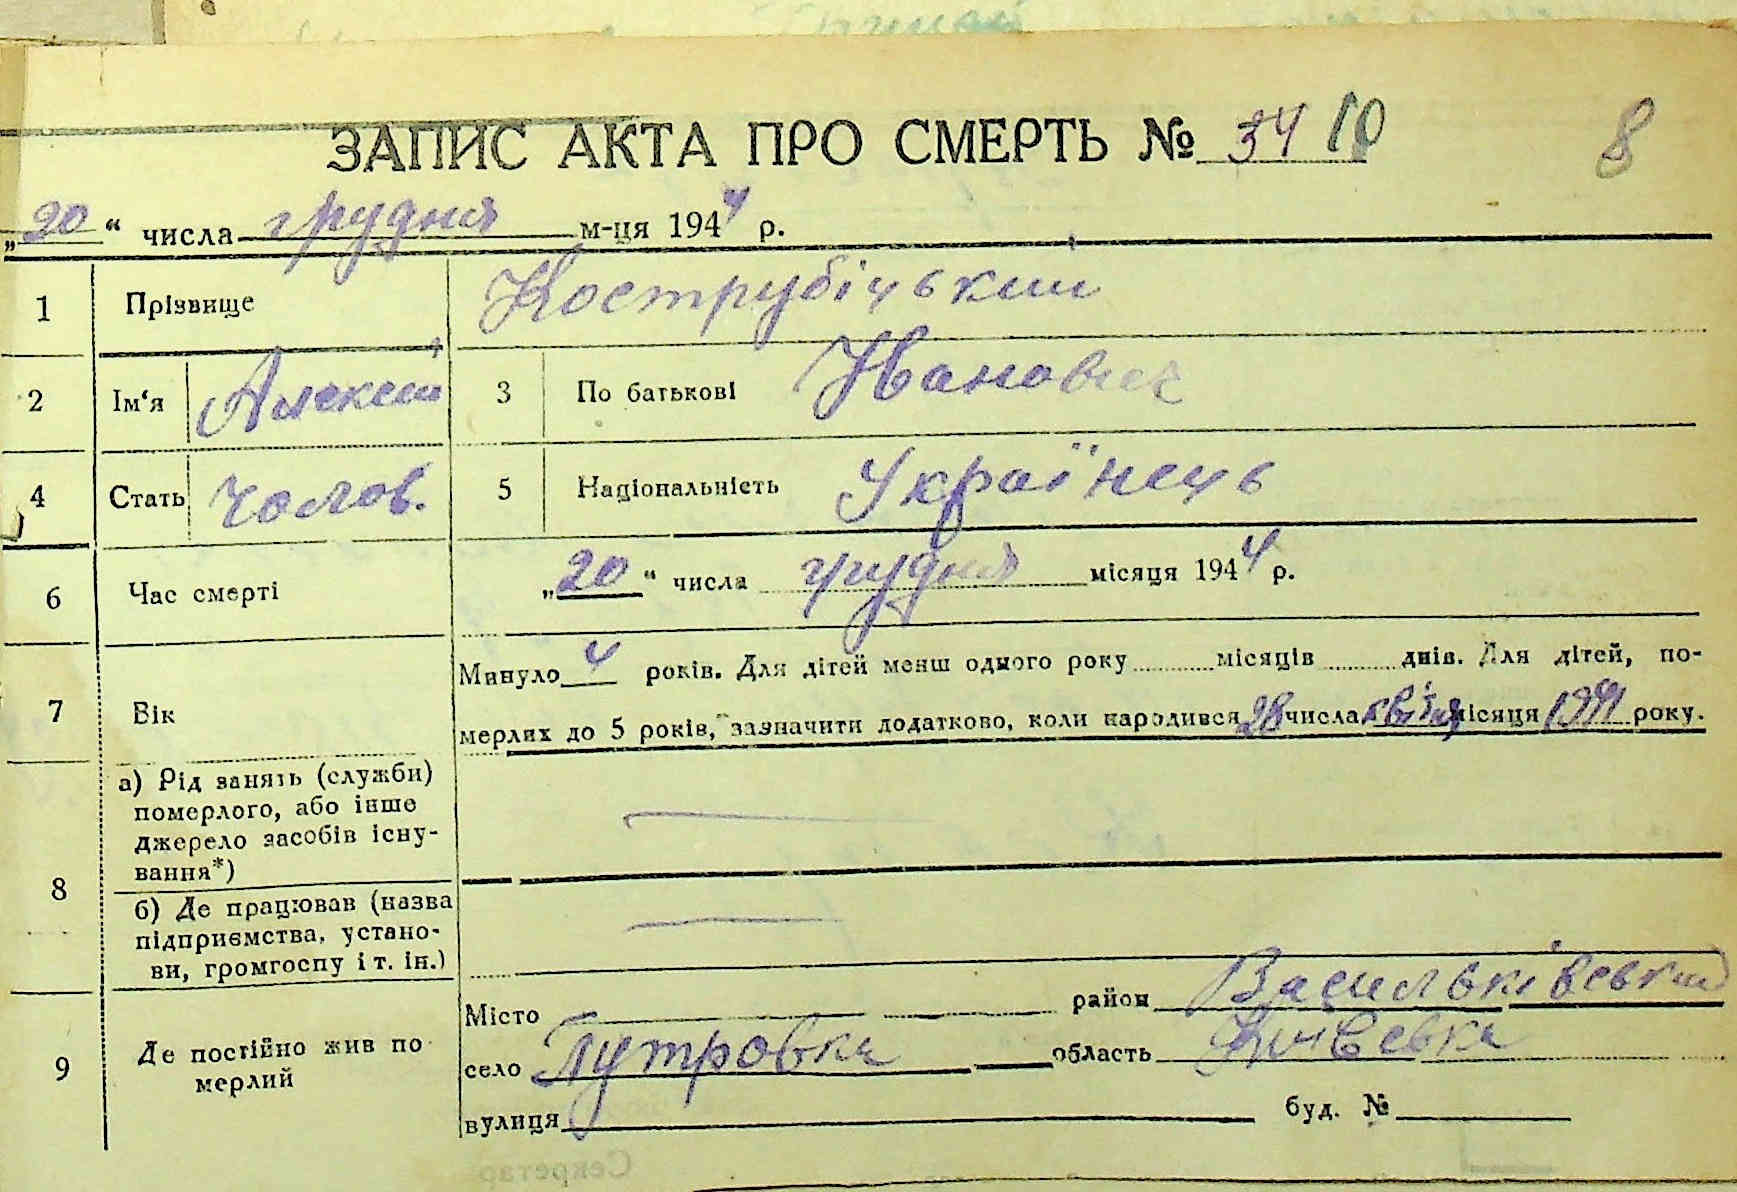 ЗАПИС АКТА ПРО СМЕРТЬ № 34 10
8
„20“ числа грудня м-ця 1944 р.
1 Прізвище Кострубіцький
2 Ім‘я Алексій 3 По батькові Іванович
4 Стать Чолов. 5 Національність Українець
6 Час смерті „20“ числа грудня місяця 1944 р.
7 Вік Минуло 4 років. Для дітей менш одного року місяців днів. Для дітей, по-
мерлих до 5 років, зазначити додатково, коли народився 28 числа квітня місяця 1941 року.
8 а) Рід занять (служби)
померлого, або інше
джерело засобів існу-
вання*) —
б) Де працював (назва
підприємства, устано-
ви, громгоспу і т. ін.) —
9 Де постійно жив по
мерлий
Місто район Васильківський
село Путровка область Київська
вулиця буд. №
Секретар